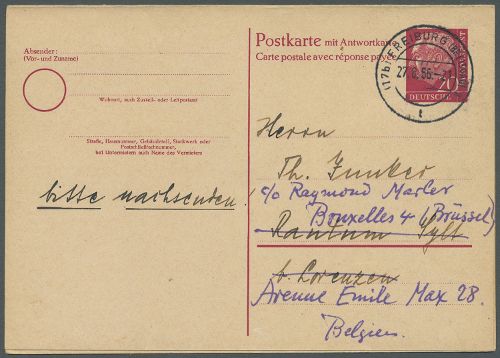 Absender:
(Vor- und Zuname)
Wohnort, auch Zustell- oder Leitpostamt
Straße, Hausnummer, Gebäudeteil, Stockwerk oder
Postschließfachnummer,
bei Untermietern auch Name des Vermieters
bitte nachsenden.
Postkarte mit Antwortkarte
Carte postale avec réponse payée
(17b) FREIBURG
27.6.56
20
DEUTSCHE
t
Herrn
Th. Junker
c/o Raymond Marler
Bruxelles 4 (Brüssel)
Rantum Sylt
b. Lorenzen
Avenue Emile Max 28.
Belgien.